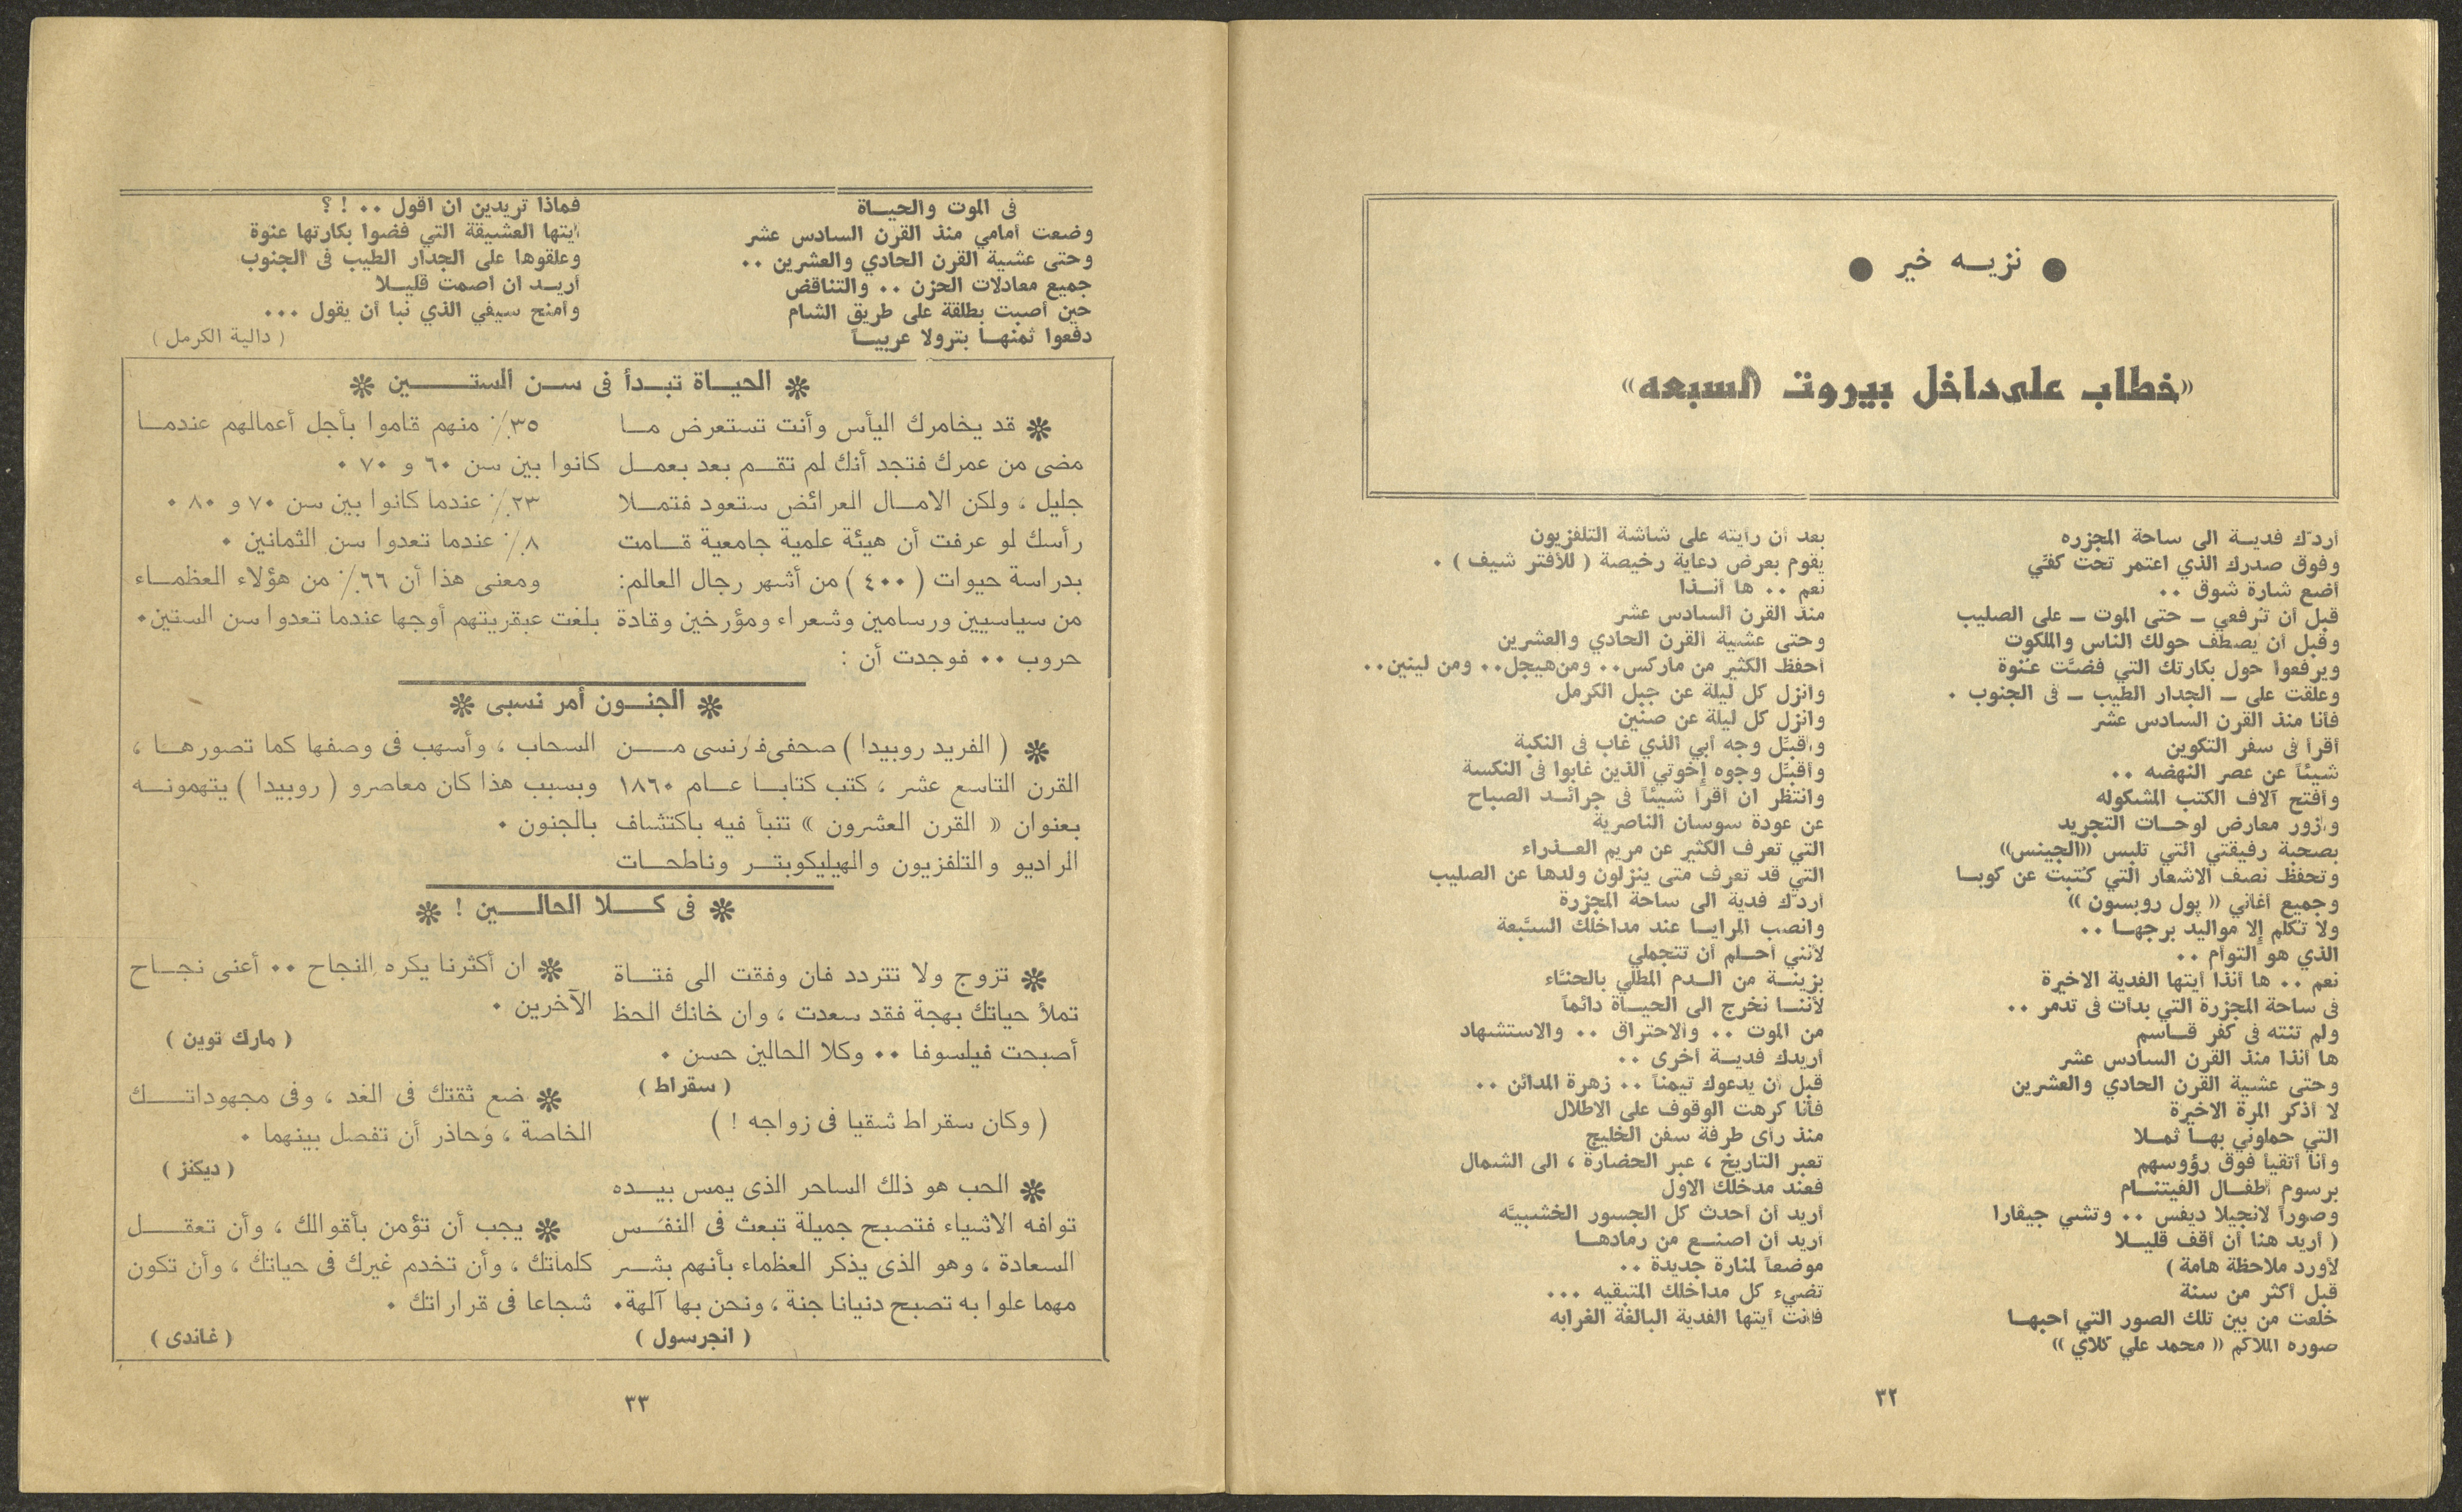 ● نزيـــه خير ●
«خطاب على داخل بيروت السبعه»
أردّك فديـــة الى ساحة المجزره
وفوق صدرك الذي اعتمر تحت كفّي
أضع شارة شوق ٠٠
قبل أن تُرفعي ــ حتى الموت ــ على الصليب
وقبل أن يصطف حولك الناس والملكوت
ويرفعوا حول بكارتك التي فضّت عنوة
وعلقت على ــ الجدار الطيب ــ فى الجنوب ٠
فأنا منذ القرن السادس عشر
أقرأ فى سفر التكوين
شيئاً عن عصر النهضه ٠٠
وأفتح آلاف الكتب المشكوله
وأزور معارض لوحـــات التجريد
بصحبة رفيقتي التي تلبس «الجينس»
وتحفظ نصف الاشعار التي كُتبت عن كوبـــا
وجميع أغاني « پول روبسون »
ولا تكلم إلا مواليد برجهـــا ٠٠
الذي هو التوأم ٠٠
نعم ٠٠ ها أنذا أيتها الفدية الاخيرة
فى ساحة المجزرة التي بدأت فى تدمر ٠٠
ولم تنته فى كفر قـــاسم
ها أنذا منذ القرن السادس عشر
وحتى عشية القرن الحادي والعشرين
لا أذكر المرة الاخيرة
التي حملوني بهـــا ثمـــلا
وأنا أتقيأ فوق رؤوسهم
برسوم أطفـــال الفيتنـــام
وصوراً لانجيلا ديفس ٠٠ وتشي جيڤارا
( أريد هنا أن أقف قليـــلا
لأورد ملاحظة هامة )
قبل أكثر من سنة
خلعت من بين تلك الصور التي أحبهـــا
صوره الملاكم « محمد علي كلاي »
بعد أن رأيته على شاشة التلفزيون
يقوم بعرض دعاية رخيصة ( للأفتر شيف ) ٠
نعم ٠٠ ها أنـــذا
منذ القرن السادس عشر
وحتى عشية القرن الحادي والعشرين
أحفظ الكثير من ماركس٠٠ ومن هيجل٠٠ ومن لينين٠٠
وأنزل كل ليلة عن جبل الكرمل
وأنزل كل ليلة عن صنين
وأقبّل وجه أبي الذي غاب فى النكبة
وأقبّل وجوه إخوتي الذين غابوا فى النكسة
وانتظر أن أقرأ شيئاً فى جرائـــد الصباح
عن عودة سوسان الناصرية
التي تعرف الكثير عن مريم العـــذراء
التي قد تعرف متى ينزلون ولدها عن الصليب
أردّك فدية الى ساحة المجزرة
وانصب المرايـــا عند مداخلك السبَّعة
لأنني أحـــلم أن تتجملي
بزينـــة من الـــدم المطلي بالحنّاء
لأننـــا نخرج الى الحيـــاة دائماً
من الموت ٠٠ والاحتراق ٠٠ والاستشهاد
أريدك فديـــة أخرى ٠٠
قبل أن يدعوك تيمناً ٠٠ زهرة المدائن ٠٠
فأنا كرهت الوقوف على الاطلال
منذ رأى طرفة سفن الخليج
تعبر التاريخ ، عبر الحضارة ، الى الشمال
فعند مدخلك الاول
أريد أن أحدث كل الجسور الخشبيَّه
أريد أن اصنـــع من رمادهـــا
موضعاً لمنارة جديدة ٠٠
تضيء كل مداخلك المتبقيه ٠٠٠
فأنت أيتها الفدية البالغة الغرابه
٣٢
فى الموت والحيـــاة
وضعت أمامي منذ القرن السادس عشر
وحتى عشية القرن الحادي والعشرين ٠٠
جميع معادلات الحزن ٠٠ والتناقض
حين أصبت بطلقة على طريق الشام
دفعوا ثمنهـــا بترولا عربيـــاً
فماذا تريدين ان أقول ٠٠ ! ؟
أيتها العشيقة التي فضوا بكارتها عنوة
وعلقوها على الجدار الطيب فى الجنوب
أريـــد ان اصمت قليـــلا
وأمنح سيفي الذي نبا أن يقول ٠٠٠
( دالية الكرمل )
❋ الحيـــاة تبـــدأ فى ســـن الستـــــين ❋
❋ قد يخامرك اليأس وأنت تستعرض مـــا
مضى من عمرك فتجد أنك لم تقـــم بعد بعمـــل
جليل ، ولكن الامـــال العرائض ستعود فتمـــلا
رأسك لو عرفت أن هيئة علمية جامعية قـــامت
بدراسة حيوات ( ٤٠٠ ) من أشهر رجال العالم:
من سياسيين ورسامين وشعراء ومؤرخين وقادة
حروب ٠٠ فوجدت أن :
٣٥٪ منهم قاموا بأجل أعمالهم عندمـــا
كانوا بين سن ٦٠ و ٧٠ ٠
٢٣٪ عندما كانوا بين سن ٧٠ و ٨٠ ٠
٨٪ عندما تعدوا سن الثمانين ٠
ومعنى هذا أن ٦٦٪ من هؤلاء العظمـــاء
بلغت عبقريتهم أوجها عندما تعدوا سن الستين٠
❋ الجنـــون أمر نسبى ❋
❋ ( الفريد روبيدا ) صحفى فرنسى مـــن
القرن التاسع عشر ، كتب كتابـــا عـــام ١٨٦٠
بعنوان « القرن العشرون » تنبأ فيه باكتشاف
الراديو والتلفزيون والهيليكوبتـــر وناطحـــات
السحاب ، وأسهب فى وصفها كما تصورهـــا ،
وبسبب هذا كان معاصرو ( روبيدا ) يتهمونـــه
بالجنون ٠
❋ فى كـــــلا الحالـــــين ! ❋
❋ تزوج ولا تتردد فان وفقت الى فتـــاة
تملأ حياتك بهجة فقد سعدت ، وان خانك الحظ
أصبحت فيلسوفا ٠٠ وكلا الحالين حسن ٠
( سقراط )
( وكان سقراط شقيا فى زواجه ! )
❋ الحب هو ذلك الساحر الذى يمس بيـــده
توافه الاشياء فتصبح جميلة تبعث فى النفـــس
السعادة ، وهو الذى يذكر العظماء بأنهم بشـــر
مهما علوا به تصبح دنيانا جنة ، ونحن بها آلهة٠
( انجرسول )
❋ ان أكثرنا يكره النجاح ٠٠ أعنى نجـــاح
الآخرين ٠
( مارك توين )
❋ ضع ثقتك فى الغد ، وفى مجهوداتـــــك
الخاصة ، وحاذر أن تفصل بينهما ٠
( ديكنز )
❋ يجب أن تؤمن بأقوالك ، وأن تعقـــــل
كلماتك ، وأن تخدم غيرك فى حياتك ، وأن تكون
شجاعا فى قراراتك ٠
( غاندى )
٣٣